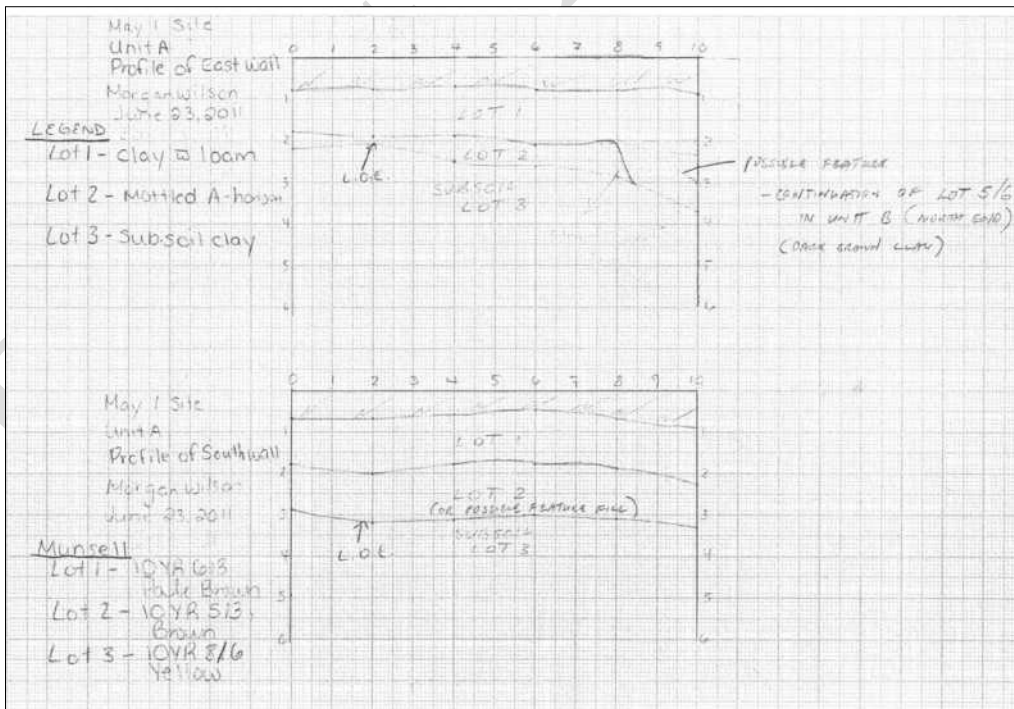 May 1 Site
Unit A
Profile of East wall
Morgan Wilson
June 23, 2011
LEGEND
Lot 1 - Clay loam
Lot 2 - Mottled A-horizon
Lot 3 - Subsoil clay
0 1 2 3 4 5 6 7 8 9 10
1 1
2 2
3 3
4
5 5
6 6
LOT 1
LOT 2
L.O.E.
SUBSOIL
LOT 3
POSSIBLE FEATURE
- CONTINUATION OF LOT 5/6
IN UNIT B (NORTH END)
(DARK BROWN CLAY)
May 1 Site
Unit A
Profile of South wall
Morgan Wilson
June 23, 2011
Munsell
Lot 1 - 10YR 6/3
Pale Brown
Lot 2 - 10YR 5/3,
Brown
Lot 3 - 10YR 8/6
Yellow
0 1 2 3 4 5 6 7 8 9 10
1 1
2 2
3 3
4 4
5 5
6 6
LOT 1
LOT 2
(OR POSSIBLE FEATURE FILL)
L.O.E.
SUBSOIL
LOT 3